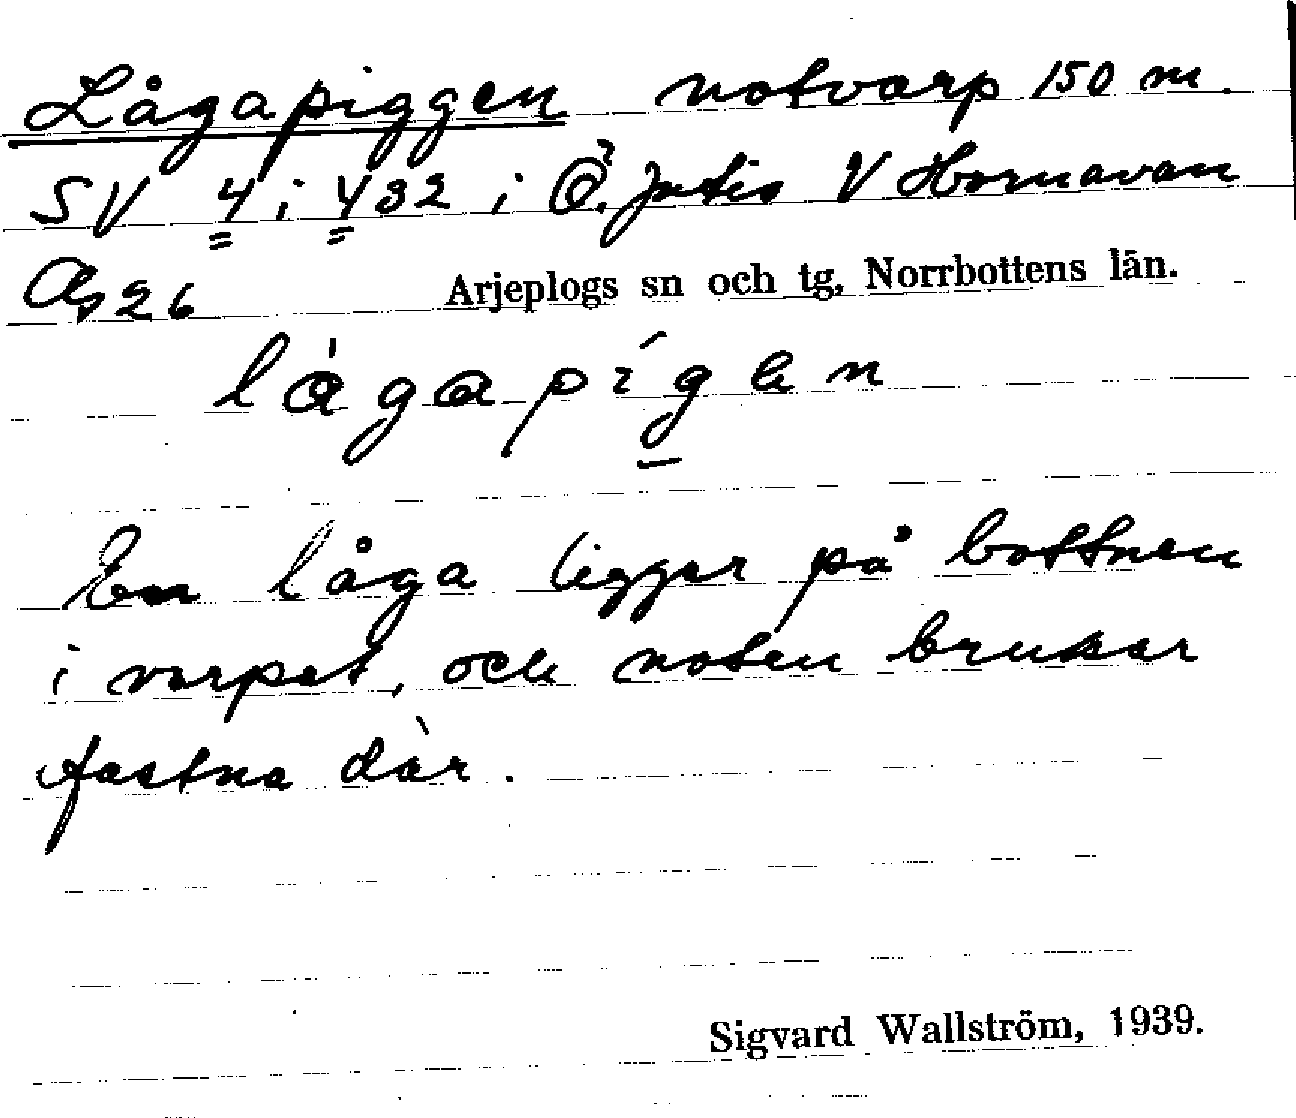 Lågapiggen notvarp 150 m.
SV 4 i 432 i Ö. Jutis V Hornavan
26 Arjeplogs sn och tg, Norrbottens län.
lågapígen
En låga ligger på bottnen
i varpet, och noten brukar
fastna där.
Sigvard Wallström, 1939.